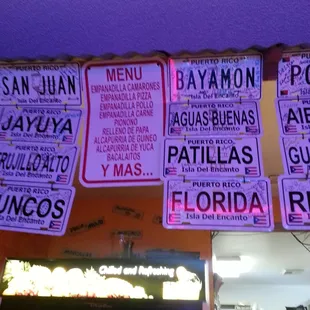 PUERTO RICO
SAN JUAN
Isla Del Encanto
PUERTO RICO
JAYUYA
Isla Del Encanto
PUERTO RICO
TRUJILLO ALTO
Isla Del Encanto
PUERTO RICO
UNCOS
Isla Del Encanto
MENU
EMPANADILLA CAMARONES
EMPANADILLA PIZZA
EMPANADILLA POLLO
EMPANADILLA CARNE
PIONONO
RELLENO DE PAPA
ALCAPURRIA DE GUINEO
ALCAPURRIA DE YUCA
BACALAITOS
Y MAS...
PUERTO RICO
BAYAMON
Isla Del Encanto
PUERTO RICO
AGUAS BUENAS
Isla Del Encanto
PUERTO RICO
PATILLAS
Isla Del Encanto
PUERTO RICO
FLORIDA
Isla Del Encanto
PO
AIB
GU
RI
Chilled and Refreshing